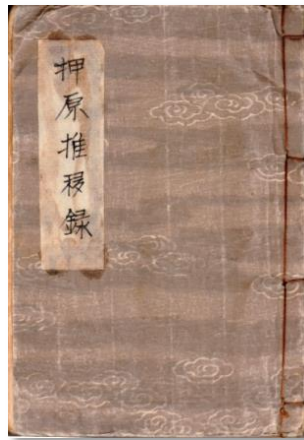 押原推移録